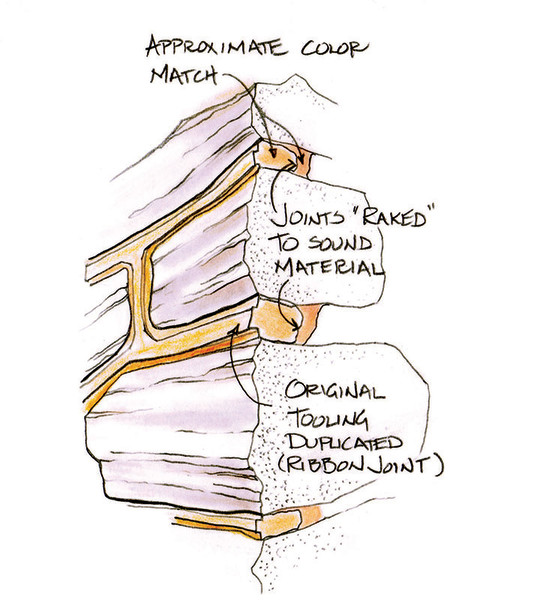 APPROXIMATE COLOR
MATCH
JOINTS "RAKED"
TO SOUND
MATERIAL
ORIGINAL
TOOLING
DUPLICATED
(RIBBON JOINT)